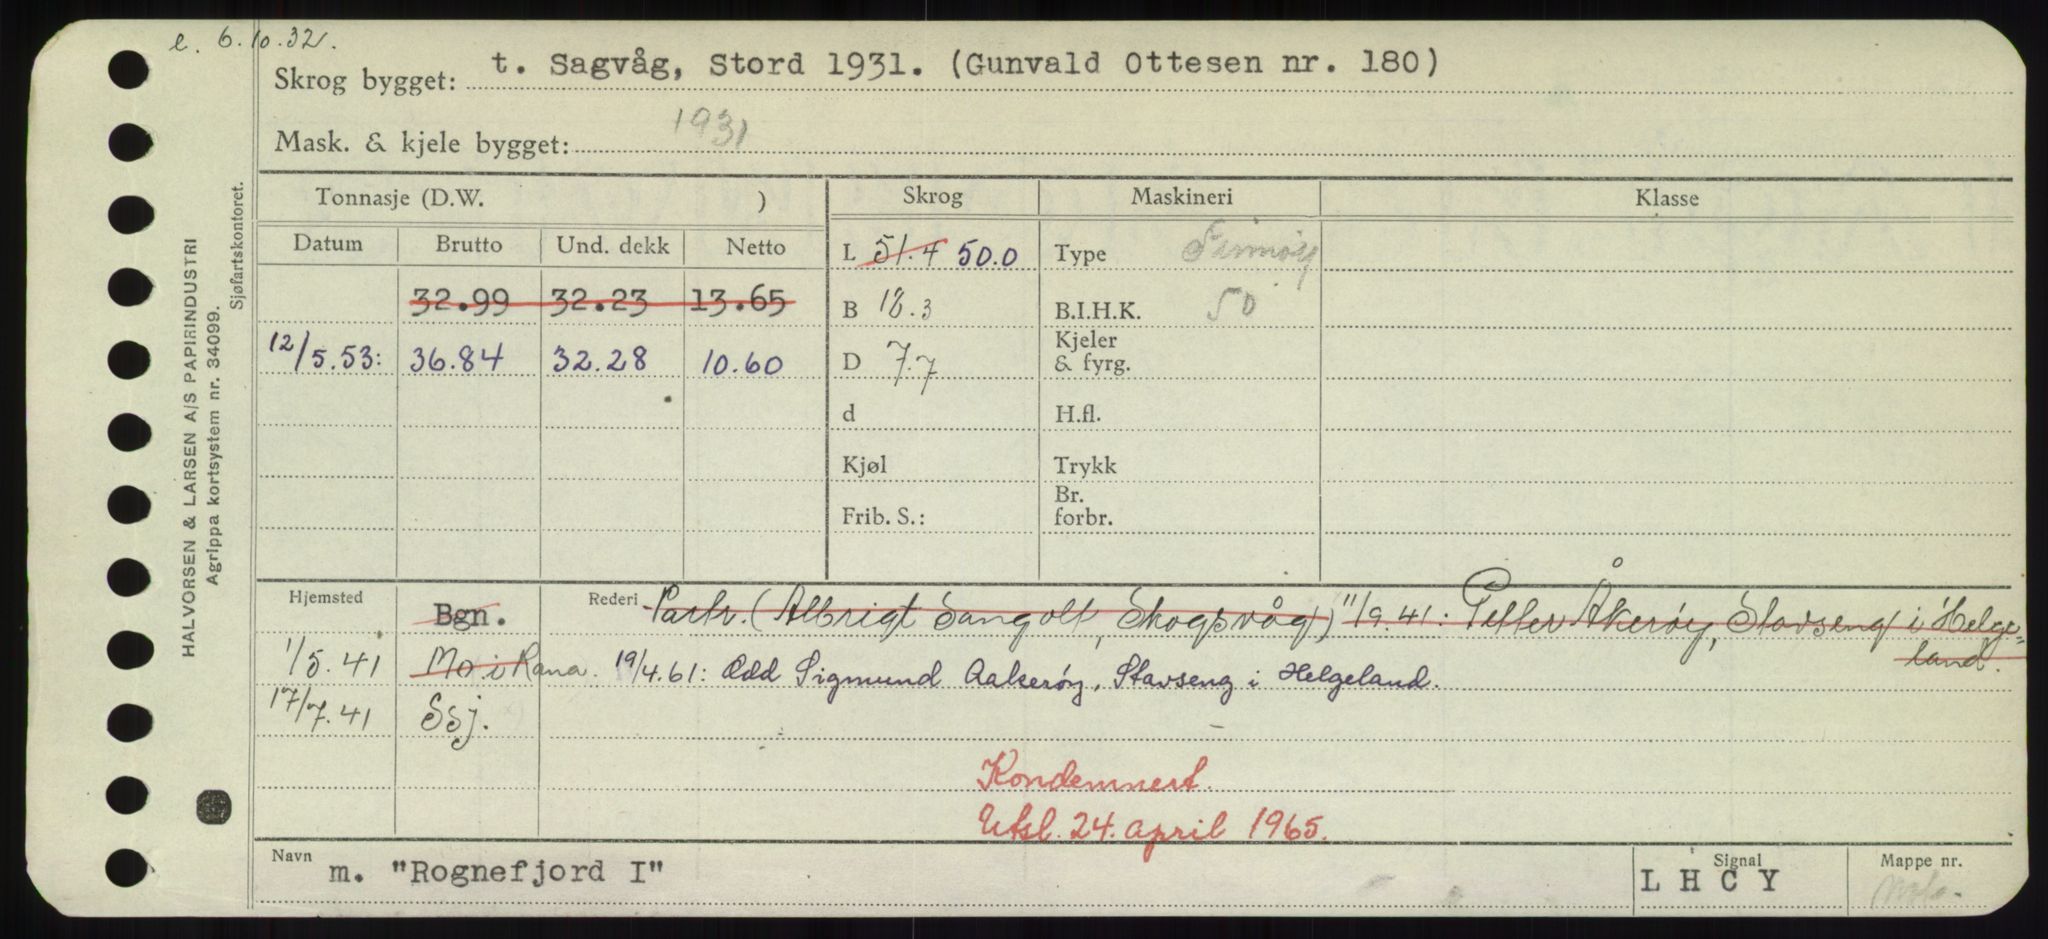 e. 6.10.32.
Skrog bygget: t. Sagvåg, Stord 1931. (Gunvald Ottesen nr. 180)
Mask. & kjele bygget: 1931
Tonnasje (D.W. ) Skrog Maskineri Klasse
Datum Brutto Und. dekk Netto L 51.4 50.0 Type
32.99 32.23 13.65 B 18.3 B.I.H.K. 50
12/5.53: 36.84 32.28 10.60 D 7.7 Kjeler & fyrg.
d H.fl.
Kjøl Trykk
Frib. S.: Br. forbr.
Hjemsted Bgn. Rederi Partr. (Albrigt Sangolt, Skogsvåg) 11/9.41: Petter Åkerøy, Stavseng i Helge-
land.
1/5.41 Mo i Rana. 19/4.61: Odd Sigmund Aakerøy, Stavseng i Helgeland.
17/7.41 Ssj.
Kondemnert.
Utsl. 24. april 1965.
Navn m. "Rognefjord I" Signal L H C Y Mappe nr.
HALVORSEN & LARSEN A/S PAPIRINDUSTRI
Agrippa kortsystem nr. 34099.
Sjøfartskontoret.